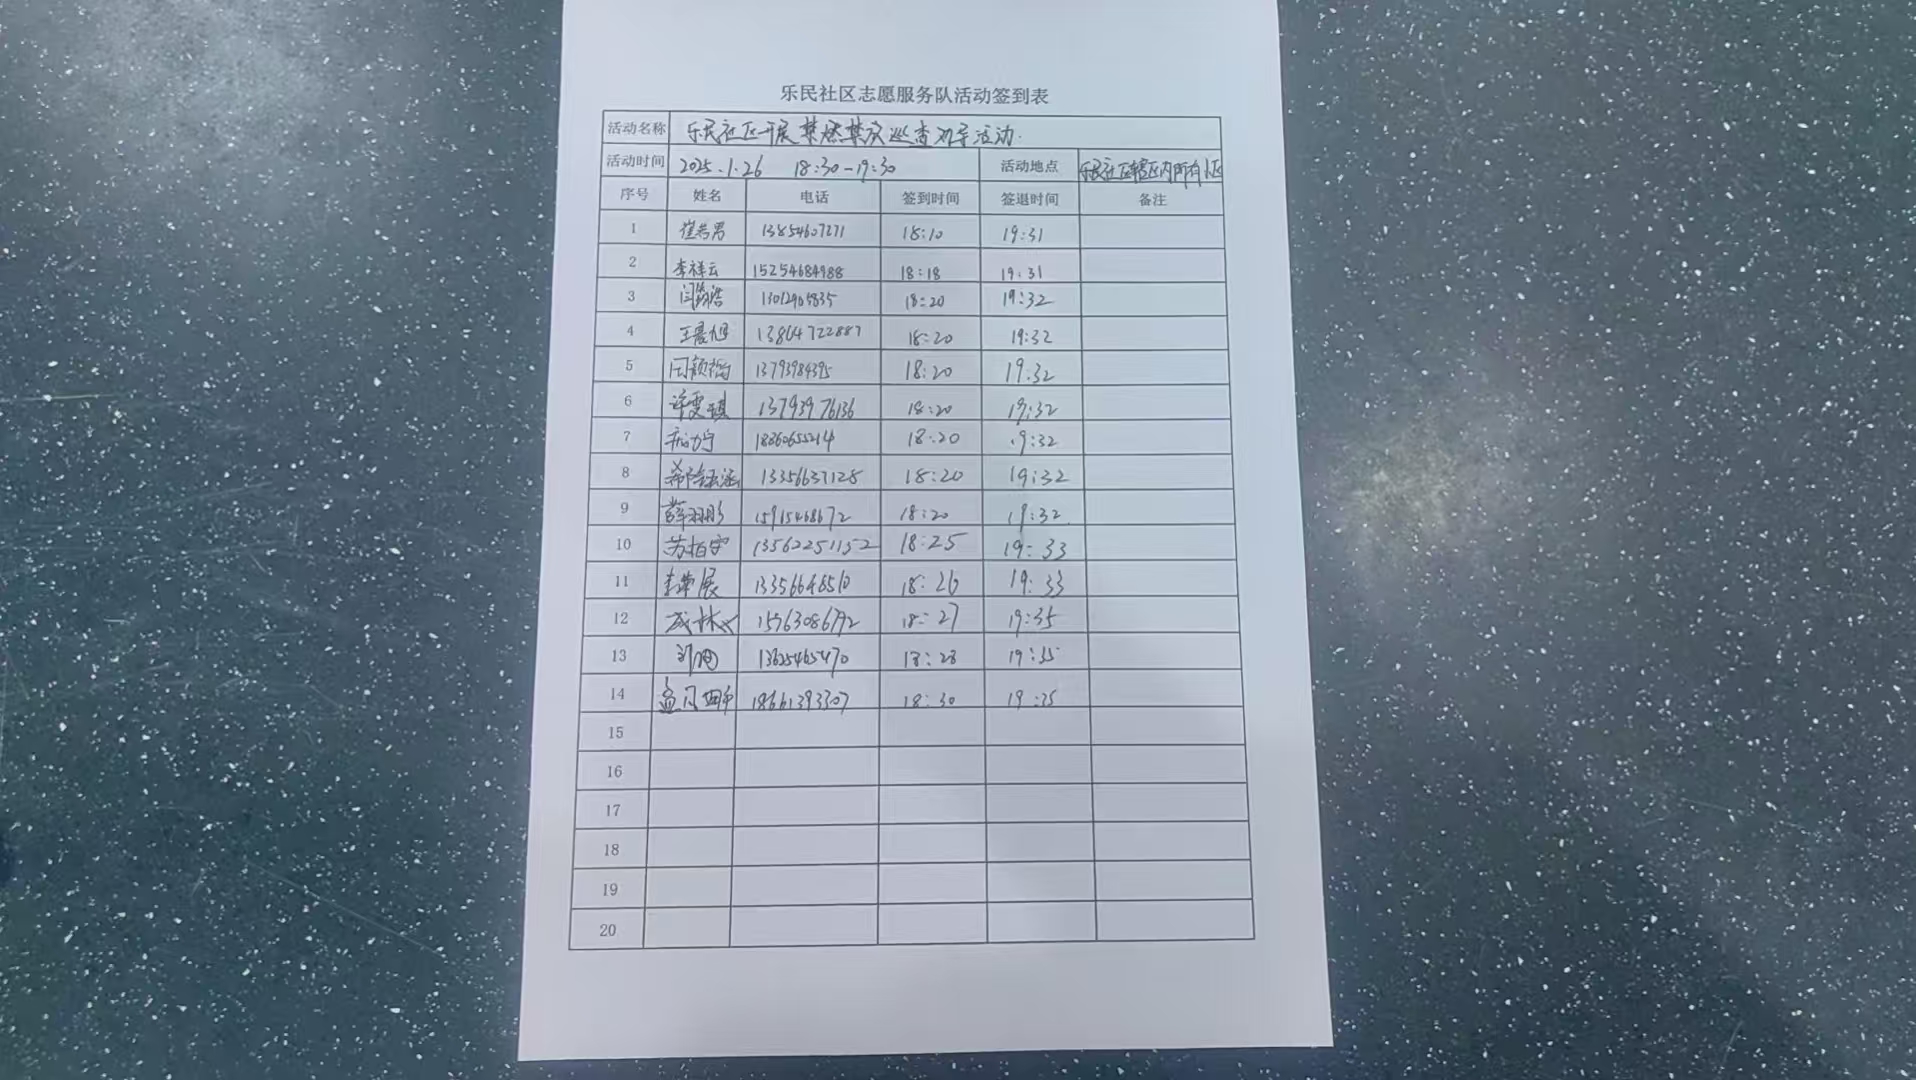 乐民社区志愿服务队活动签到表
活动名称 乐民社区开展禁燃禁放巡查劝导活动.
活动时间 2025.1.26 18:30-19:30 活动地点 乐民社区辖区内所有小区
序号 姓名 电话 签到时间 签退时间 备注
1 崔若男 13854607271 18:10 19:31
2 李祥云 15254684988 18:18 19:31
3 18:20 19:32
4 王晨旭 13864722887 18:20 19:32
5 13793984395 18:20 19:32
6 许雯琪 13793976136 18:20 19:32
7 18860655214 18:20 19:32
8 13356637128 18:20 19:32
9 薛羽彤 15915468672 18:20 19:32
10 苏柏宇 13562251152 18:25 19:33
11 18:26 19:33
12 18:27 19:35
13 13625465470 18:28 19:35
14 18661393307 18:30 19:35
15
16
17
18
19
20